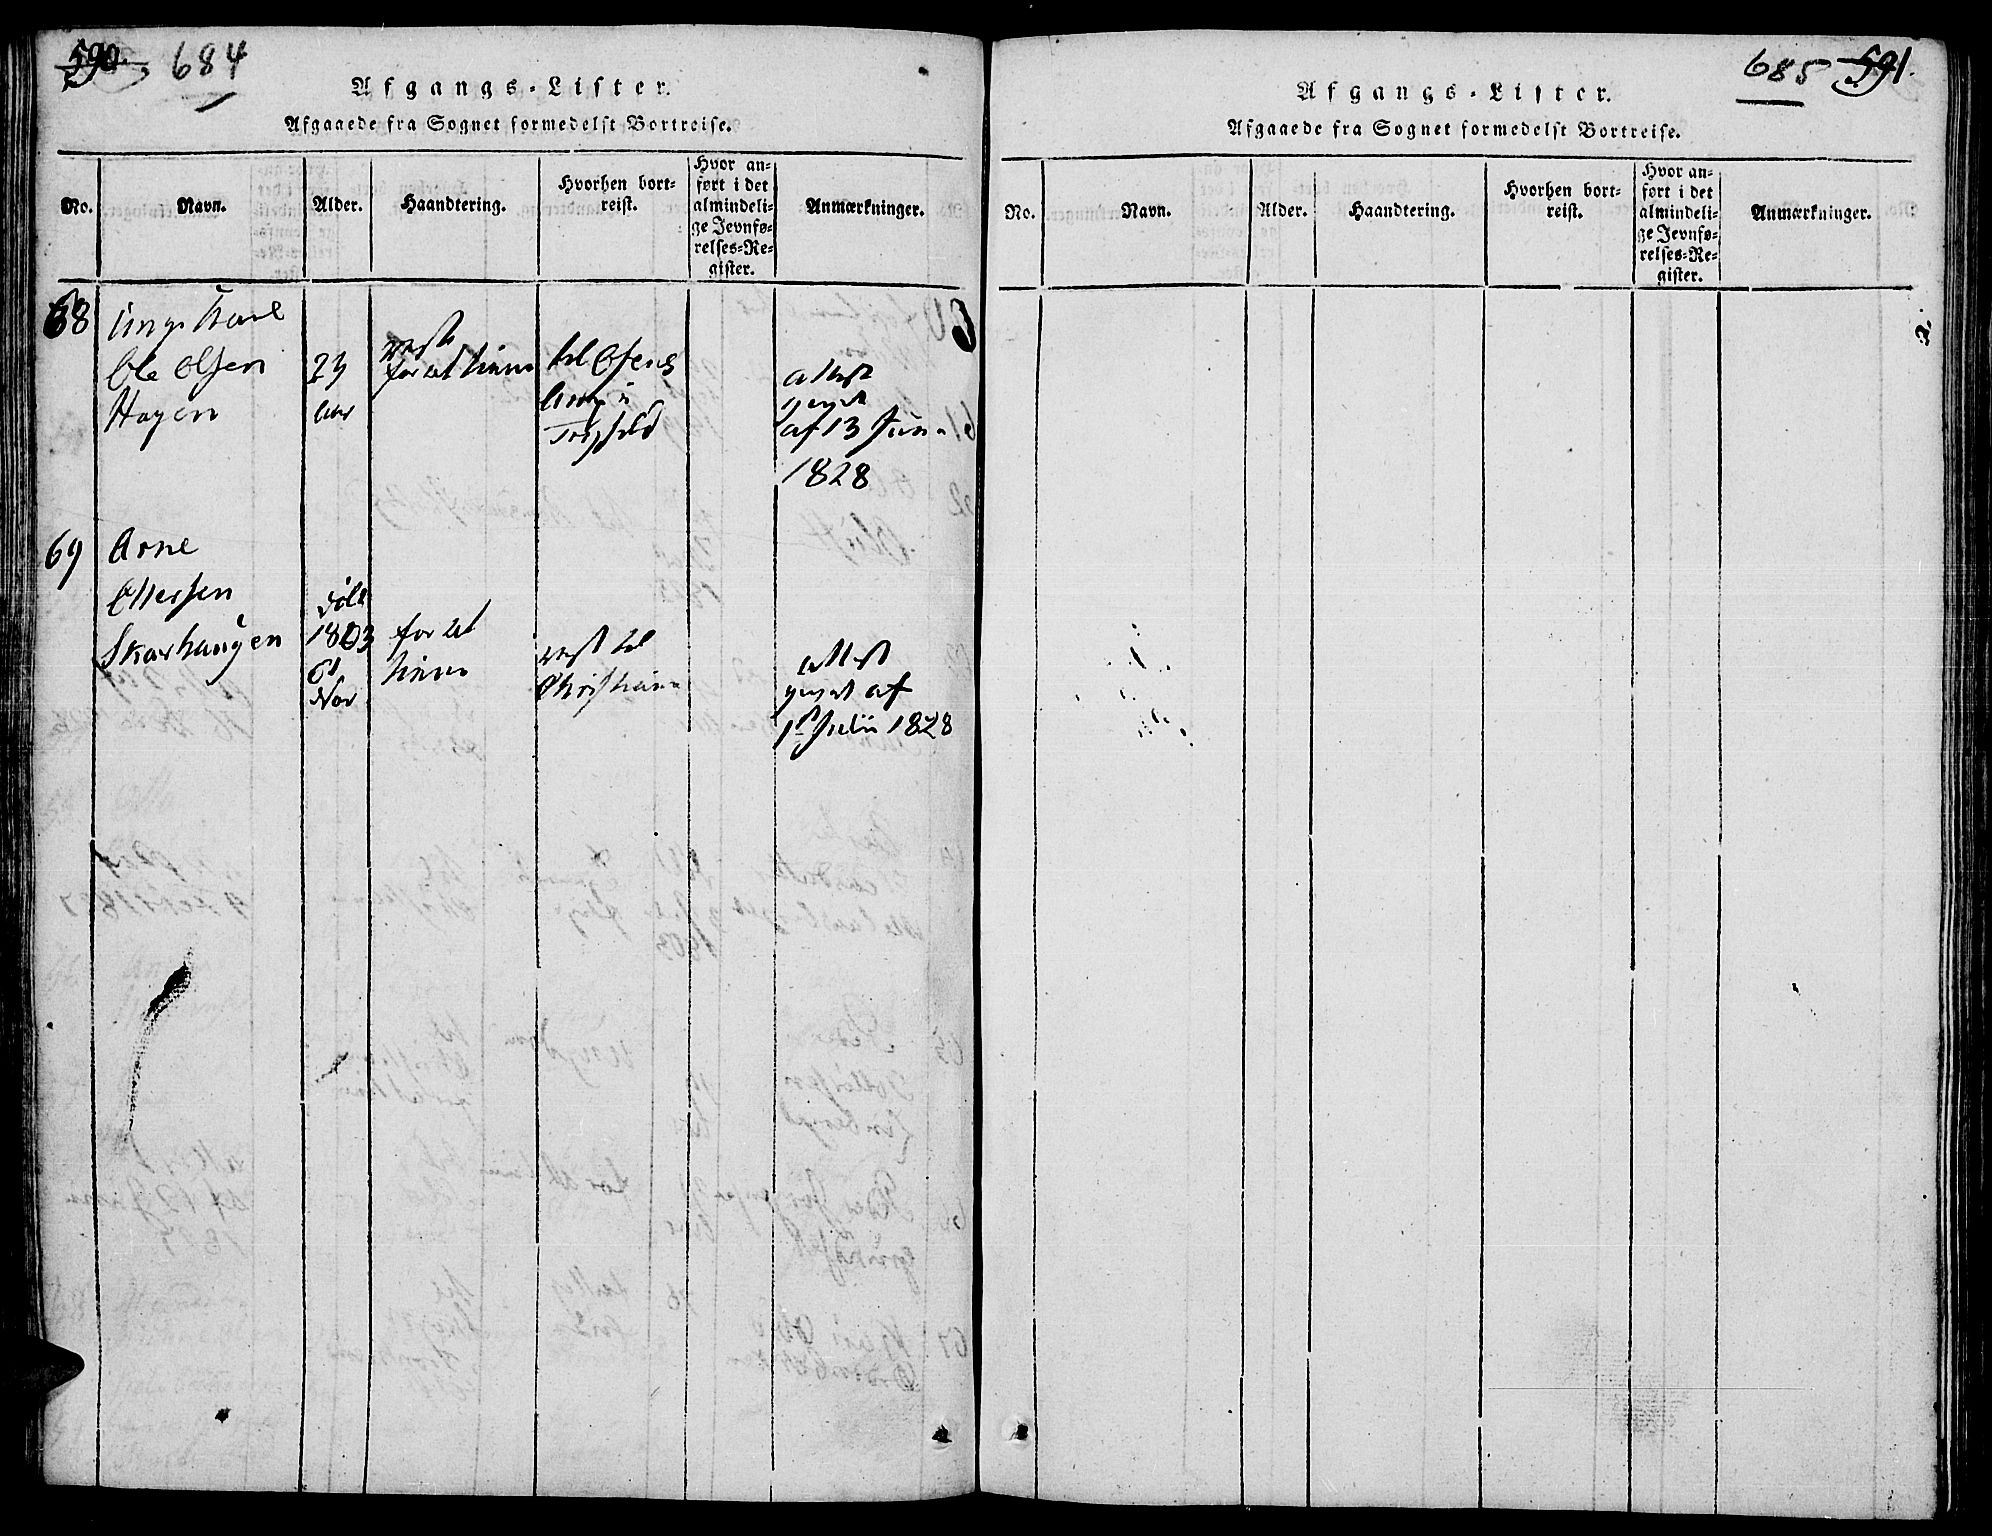 590. 684
Afgangs-Lister.
Afgaaede fra Sognet formedelst Bortreise.
No. Navn. Alder. Haandtering. Hvorhen bortreist. Hvor anført i det almindelige Jevnførelses-Register. Anmærkninger.
68 Ungekarl
Ole Olsen
Hagen
23
Aar
reist
for at tiene
til
i
Trysild
attest
af 13 Juni
1828
69 Arne
Ottersen
Skarhaugen
født
1803
6t
Nov
for at
tiene
reist til
Christiania
attest
af
1st Julii 1828
685 591.
Afgangs-Lister.
Afgaaede fra Sognet formedelst Bortreise.
No. Navn. Alder. Haandtering. Hvorhen bortreist. Hvor anført i det almindelige Jevnførelses-Register. Anmærkninger.